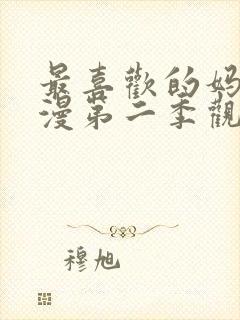 最喜歡的妈
漫第二季觀
穆旭